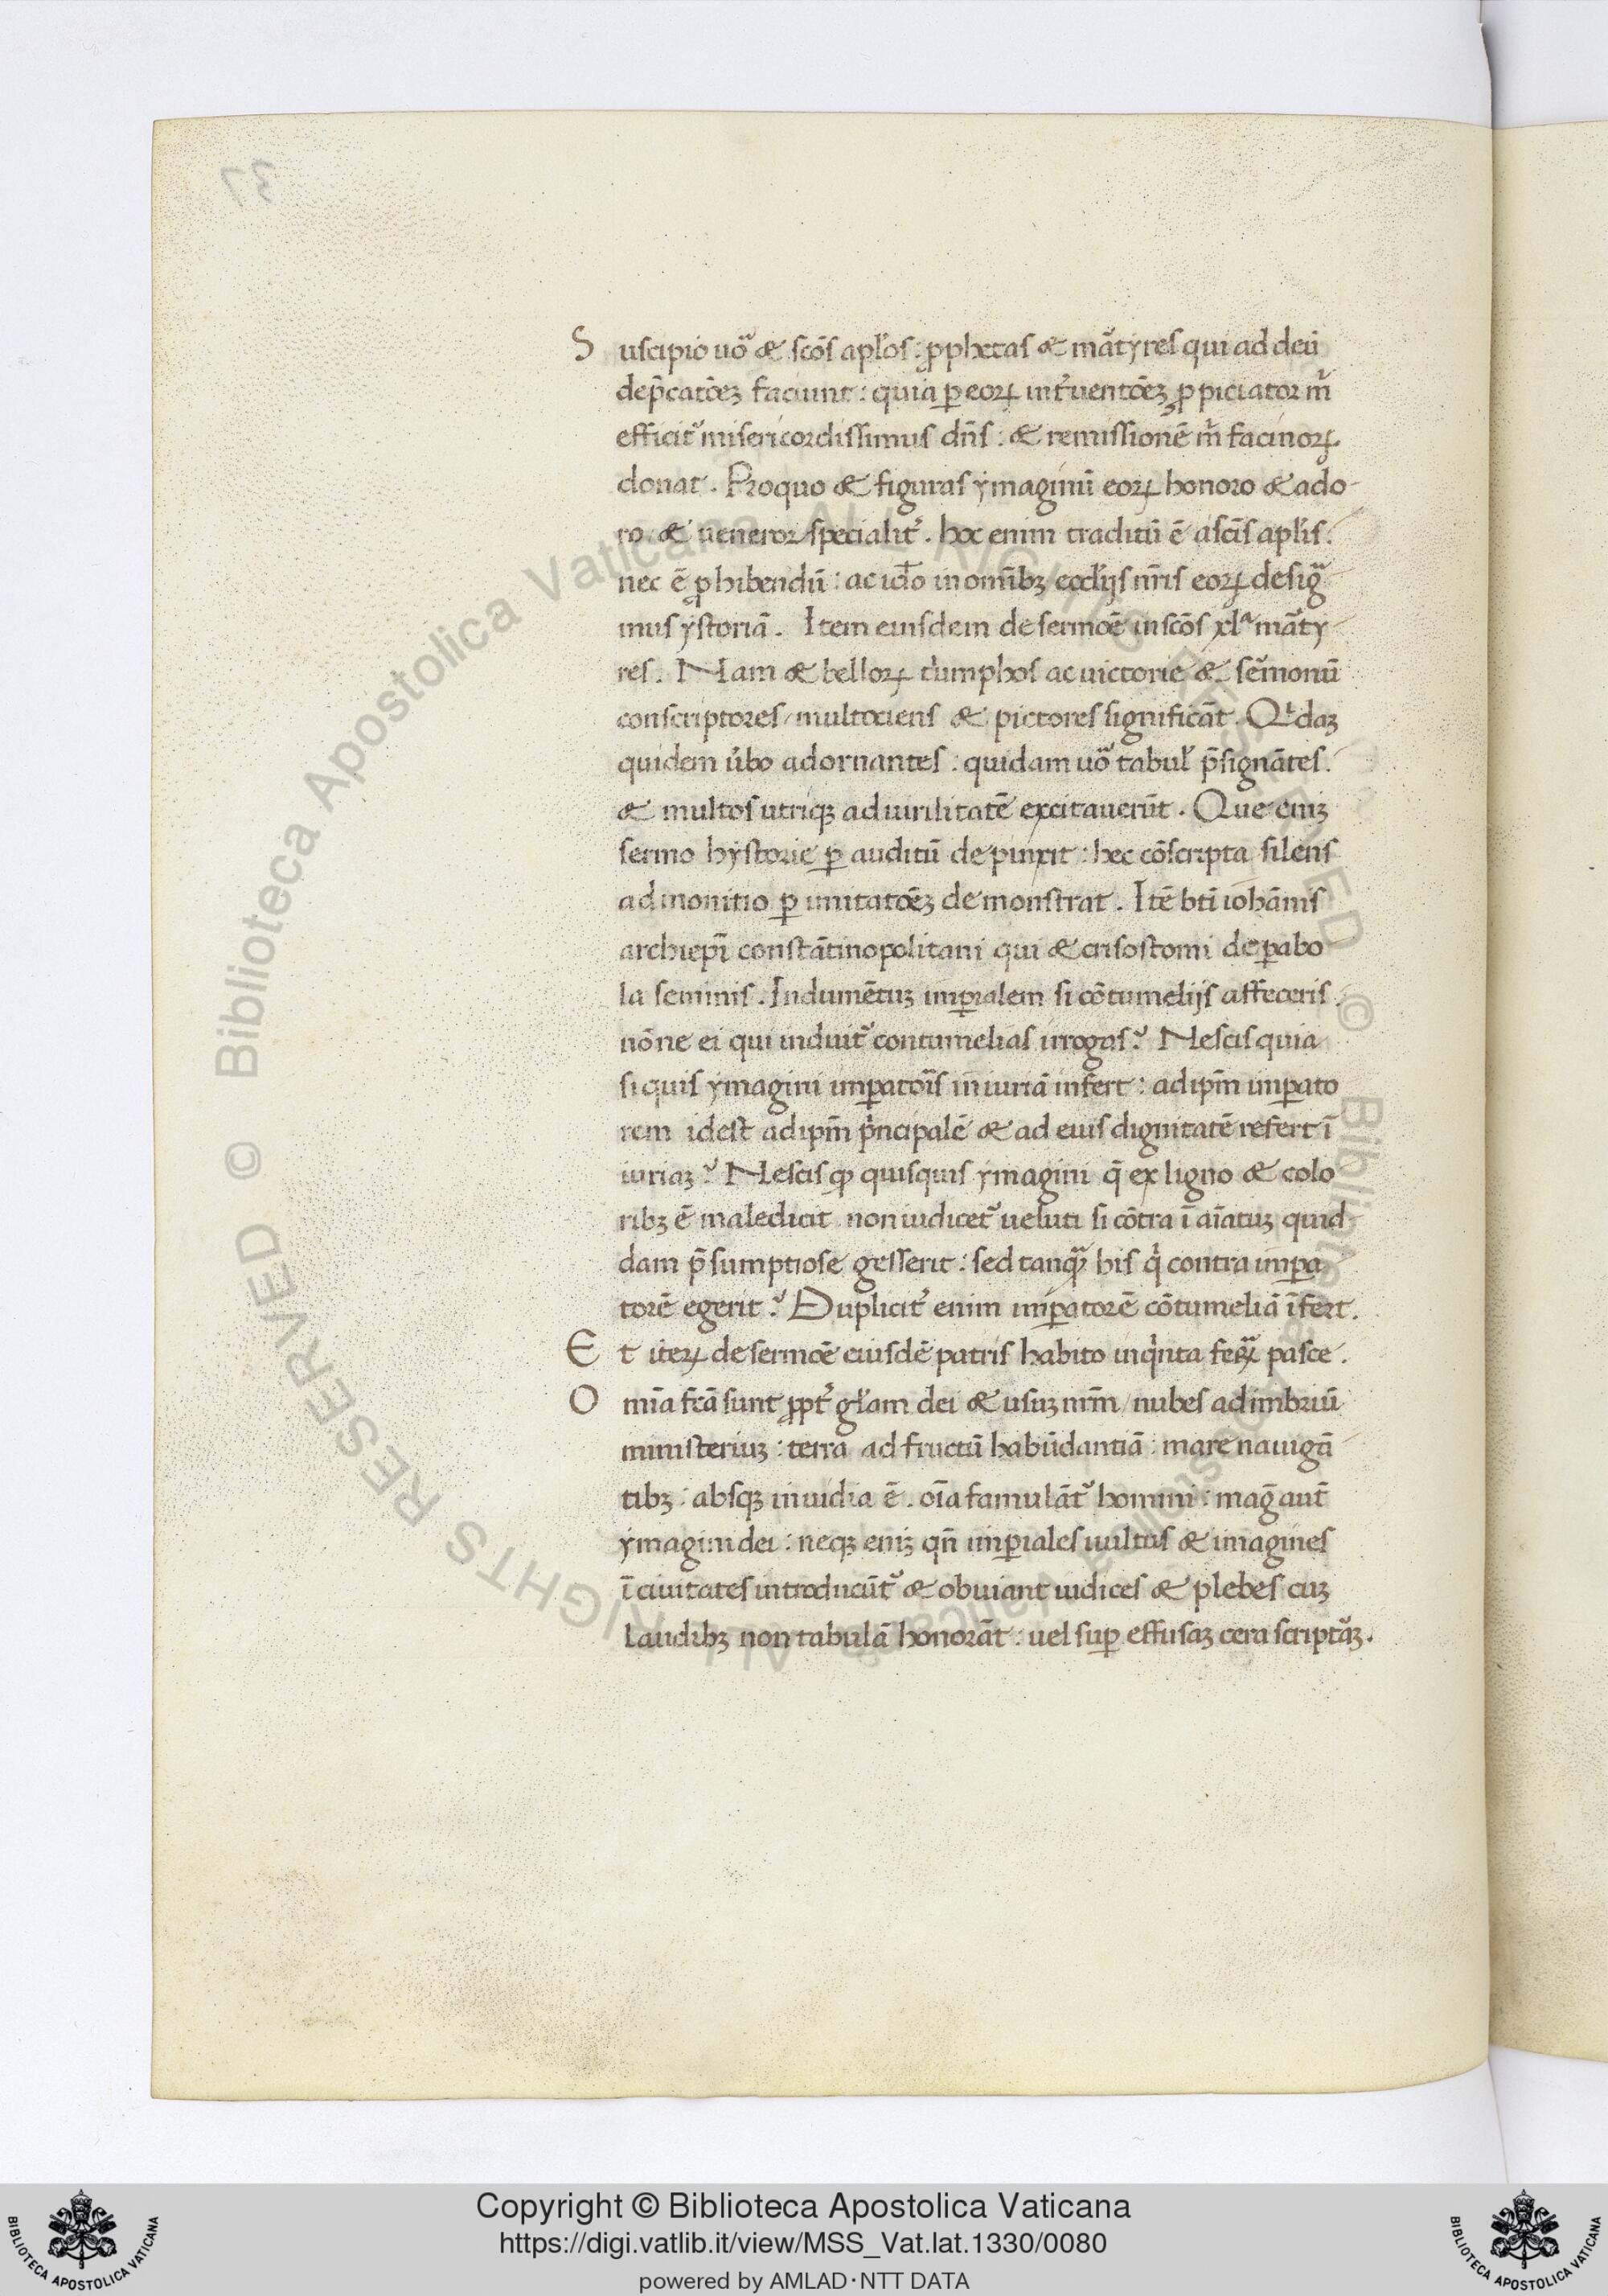 Suscipio uoᷓ & scōs apl'os : ꝓphetas & mātyres qui ad deū
dep̄catōeꝫ faciunt : quia ꝑ eoꝝ int̉uentōeꝫ ꝓpiciator m̉
efficit᷑ misericordissimus dn̄s : & remissionē m̉ facinoꝝ
donat . Pro quo & figuras ymaginū eoꝝ honoro & ado-
ro & ueneror specialit̉ . hoc enim traditū ē a scīs apl'is .
nec ē ꝓhibendū : ac idº in omībꝫ eccl'ijs nr̄is eoꝝ desigᷓ
mus ystoriā . Item eiusdem de sermōe in scōs xlᵃ māty
res . Nam & belloꝝ t'umphos ac uictorie & sēmonū
conscriptores / multociens & pictores significāt . Qⁱdaꝫ
quidem u̓bo adornantes : quidam uoᷓ tabul' p̄signātes .
& multos utriqꝫ ad uirilitatē excitauerūt . Que eniꝫ
sermo hystorie ꝑ auditū depinxit : hec cōscripta silens
admonitio ꝑ imitatōeꝫ demonstrat . Itē btī iohānis
archiepī constātinopolitani qui & crisostomi de ꝑabo
la seminis . Indumētuꝫ imꝑialem si cōtumelijs affeceris .
nōne ei qui induit᷑ contumelias irrogas ? Nescis quia
si quis ymagini imꝑatoīs iniuriā infert : ad ipm̄ imꝑato
rem idest ad ipm̄ pⁱncipalē & ad eius dignitatē refert ī
iuriaꝫ ? Nescis ꝙ quisquis ymagini q̄ ex ligno & colo
ribꝫ ē maledicit non iudicet᷑ ueluti si cōtra ī aīatuꝫ quid-
dam p̄sumptiose gesserit : sed tanqᷓ his qⁱ contra imꝑa
torē egerit ? Duplicit̉ enim imꝑatorē cōtumeliā īfert .
Et iteꝝ de sermōe eiusdē patris habito in qⁱnta feꝝᷓ pasce .
Omīa fcā sunt ꝓpt̉ gl'am dei & usuꝫ nr̄m / nubes ad imbriū
ministeriuꝫ : terra ad fructū habūdantiā : mare nauigā
tibꝫ : absqꝫ inuidia ē . oīa famulāt᷑ homini : maḡ aut̄
ymagini dei : neqꝫ eniꝫ qn̄ imꝑiales uultus & imagines
ī ciuitates introducūt᷑ & obuiant iudices & plebes cuꝫ
laudibꝫ non tabulā honorāt : uel suꝑ effusaꝫ cera scriptᷓaꝫ .
Copyright © Biblioteca Apostolica Vaticana
https://digi.vatlib.it/view/MSS_Vat.lat.1330/0080
powered by AMLAD·NTT DATA
BIBLIOTECA APOSTOLICA VATICANA
BIBLIOTECA APOSTOLICA VATICANA
© Biblioteca Apostolica Vaticana ALL RIGHTS RESERVED © Biblioteca Apostolica Vaticana ALL RIGHTS RESERVED